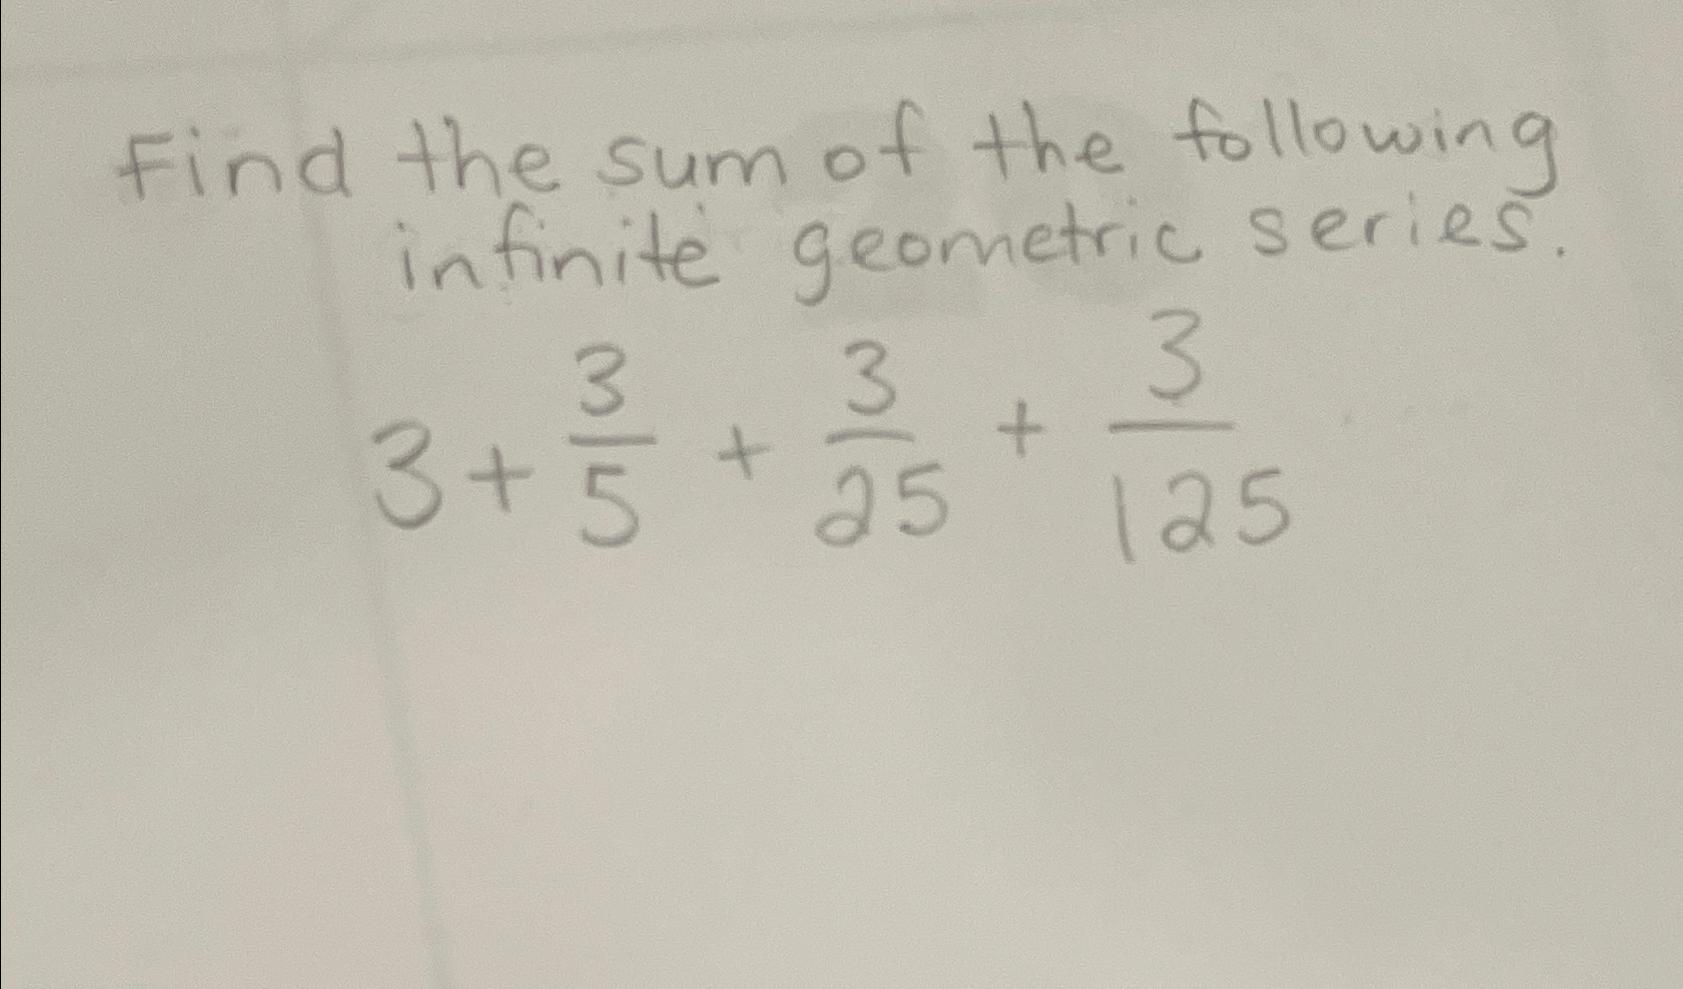 Find the sum of the following
infinite geometric series.
3 + 3/5 + 3/25 + 3/125